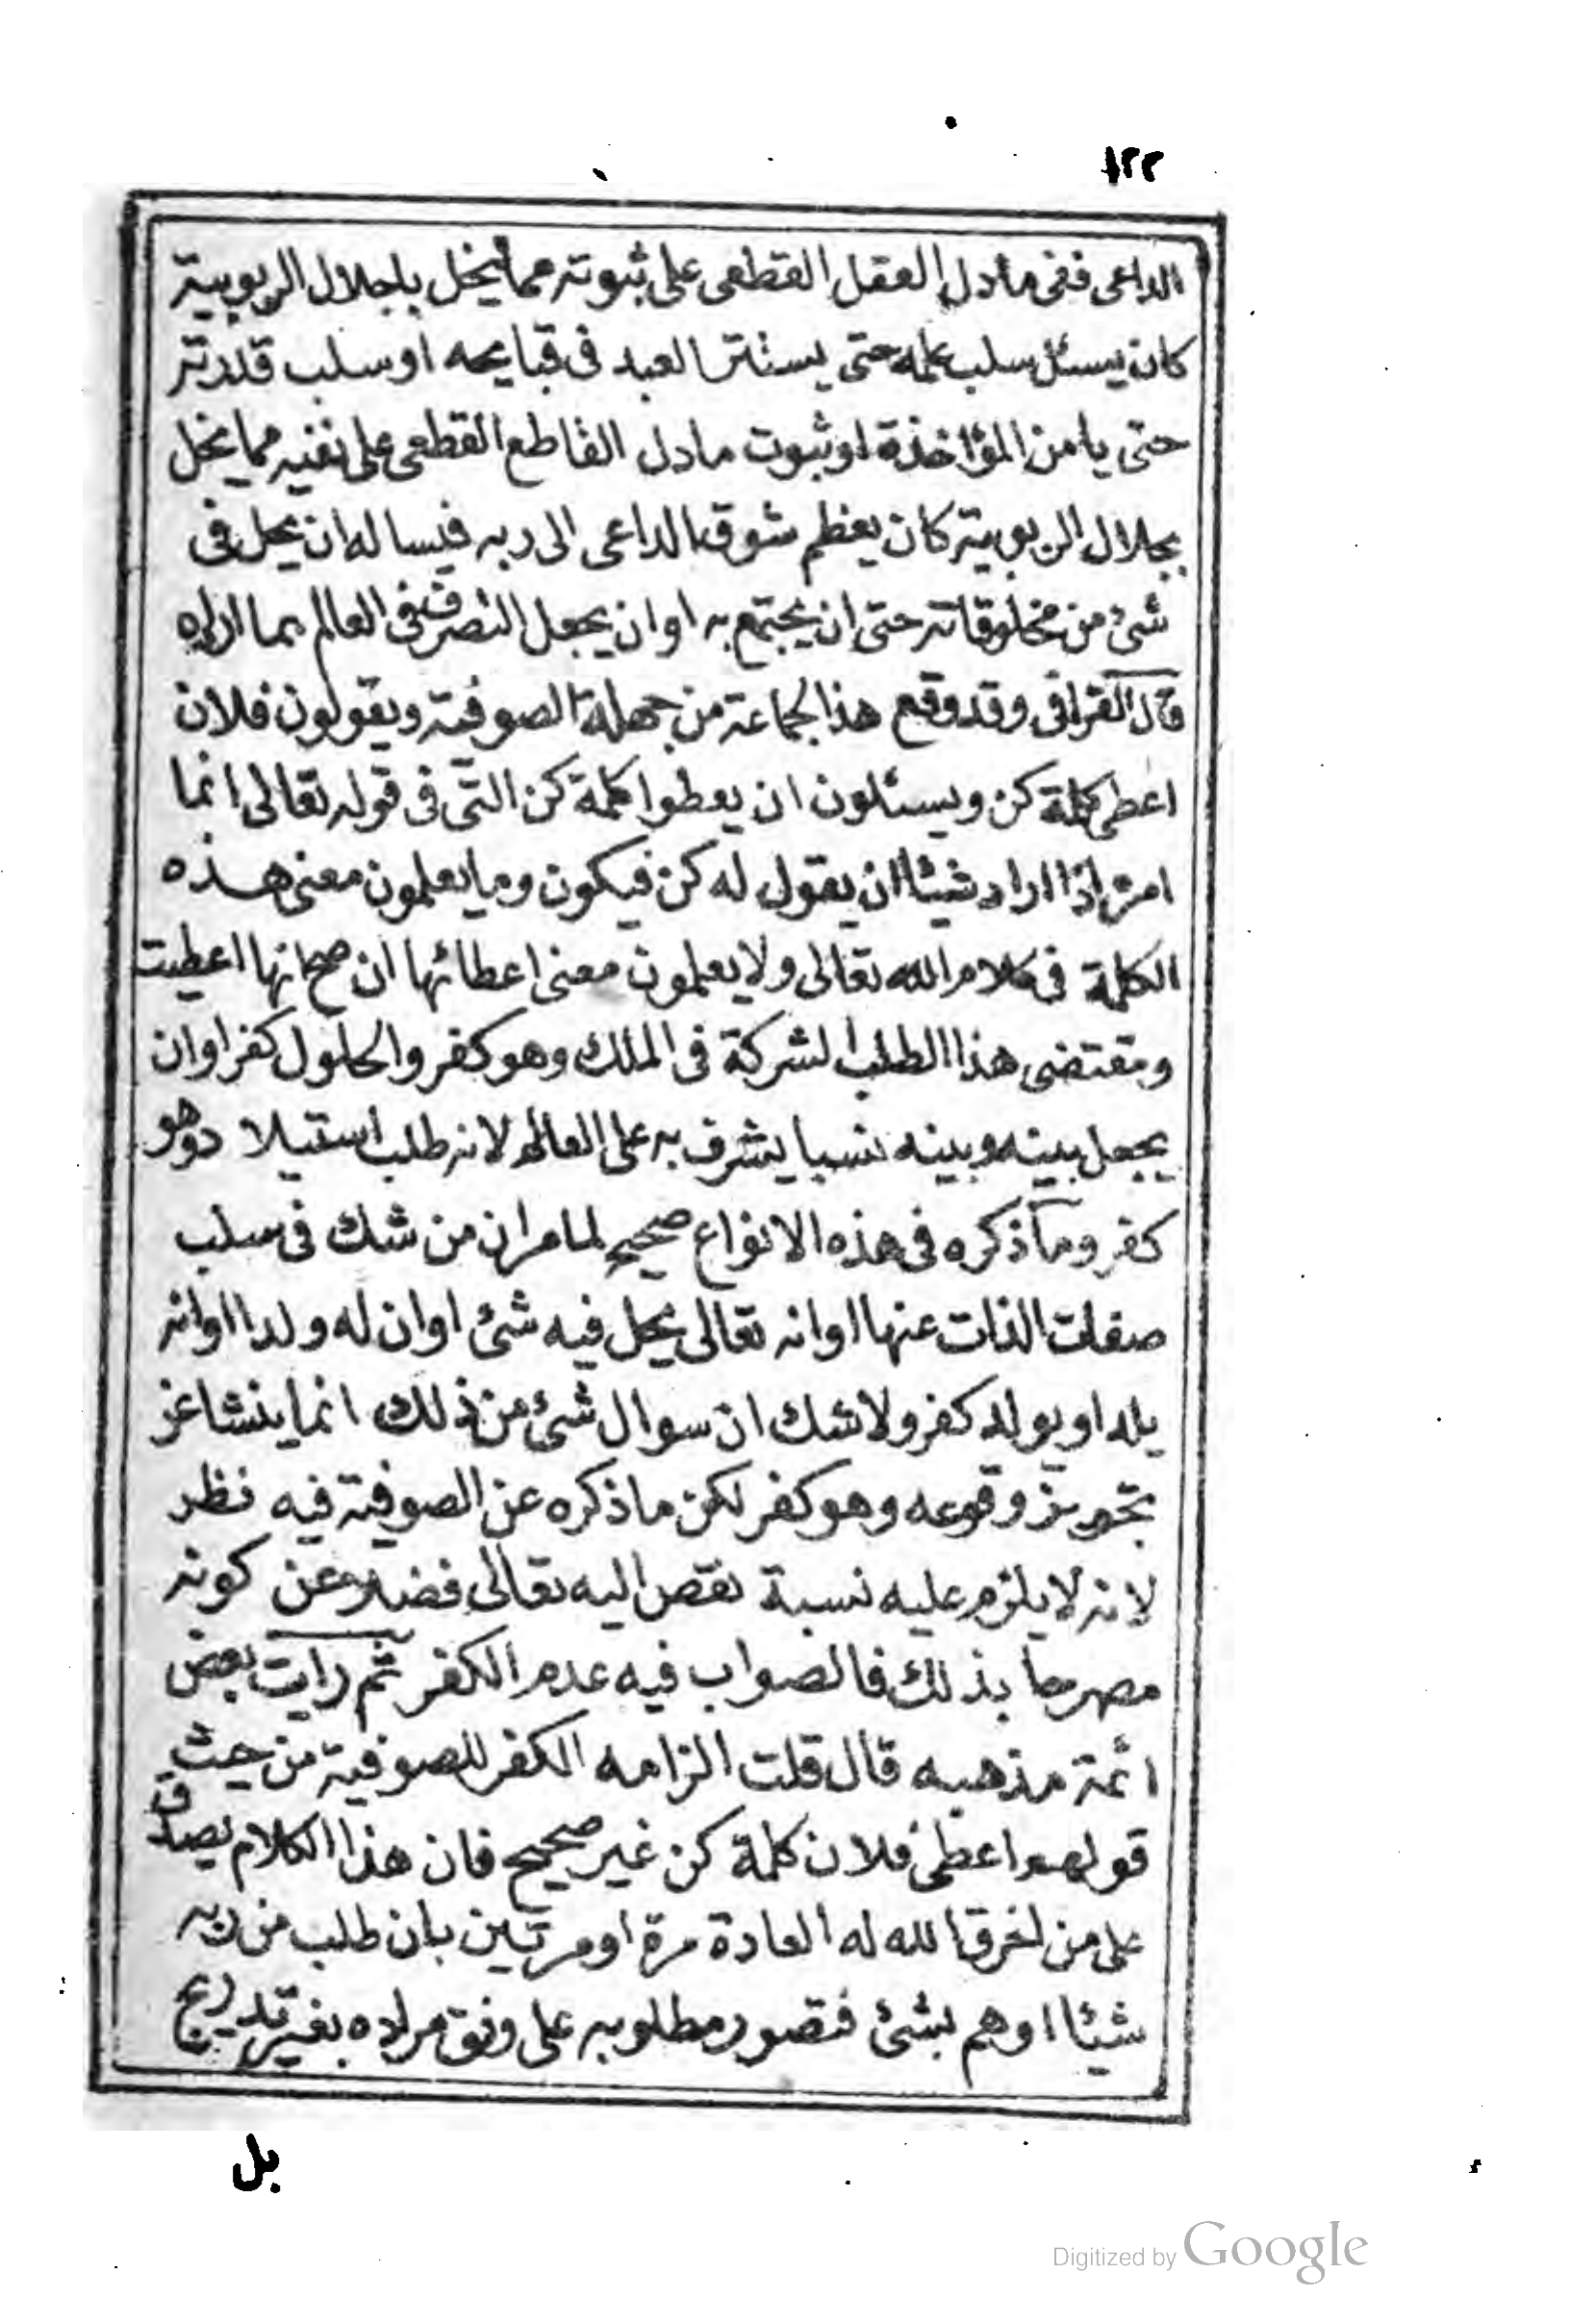 ١٢٢
الداعى فنفى ما دل العقل القطعى على ثبوته مما يخل باجلال الربوبية
كان يسئل سلب علمه حتى يستتر العبد فى قبايحه او سلب قدرته
حتى يا من المؤاخذة او ثبوت ما دل القاطع القطعى على نفيه مما يخل
بجلال الربوبية كان يعظم شوق الداعى الى ربه فيساله ان يحل فى
شئ من مخلوقاته حتى ان يجتمع به او ان يجعل التصرف فى العالم بما اراده
قال القرافى وقد وقع هذا لجماعة من جهلة الصوفية ويقولون فلان
اعطى كلمة كن ويسئلون ان يعطوا كلمة كن التى فى قوله تعالى انما
امره اذا اراد شيئا ان يقول له كن فيكون وما يعلمون معنى هذه
الكلمة فى كلام الله تعالى ولا يعلمون معنى اعطائها ان صح انها اعطيت
ومقتضى هذا الطلب الشركة فى الملك وهو كفر والحلول كفر او ان
يجعل بينه وبينه نسبا يشرف به على العالم لانه طلب استيلاد وهو
كفر وما ذكره فى هذه الانواع صحيح لما مر ان من شك فى سلب
صفات الذات عنها او انه تعالى يحل فيه شئ او ان له ولدا او انه
يلد او يولد كفر ولا شك ان سوال شئ من ذلك انما ينشا عن
تجويز وقوعه وهو كفر لكن ما ذكره عن الصوفية فيه نظر
لانه لا يلزم عليه نسبة نقص اليه تعالى فضلا عن كونه
مصرحا بذلك فالصواب فيه عدم الكفر ثم رايت بعض
ائمة مذهبه قال قلت الزامه الكفر للصوفية من حيث
قولهم اعطى فلان كلمة كن غير صحيح فان هذا الكلام يصدق
على من اخرق الله له العادة مرة او مرتين بان طلب من ربه
شيئا او هم بشئ فتصور مطلوبه على وفق مراده بغير تدريج
بل
Digitized by Google